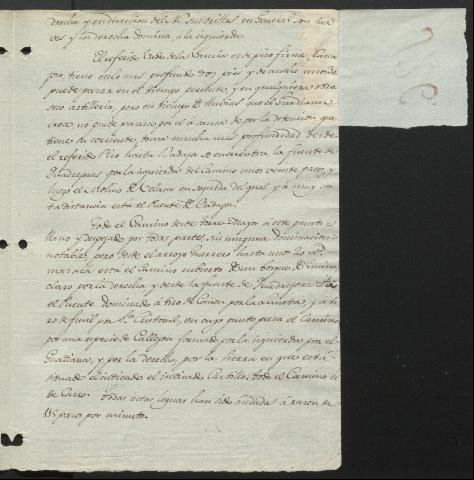 derecha y en direccion del N. sus orillas en General son sua
ves y la derecha domina, a la izquierda.
El referido Vado de la es de piso firme,
pro, tiene en lo mas profundo dos pies y de ancho
puede pasar en el tiempo presente, y en qualquiera otro
seco artilleria, pero en tiempo de lluvias que el Guadiana
crece no puede pasarse por el a causa de por la detencion que
tiene su corriente toma mucha mas profundidad desde
el referido Rio hasta Badajoz se encuentra la fuente de
Quadrejones por la izquierda del Camino unos veinte pasos y
luego el Molino de Celasco en seguida del qual y a muy cor
ta distancia está el Puente de Badajoz.
Todo el Camino desde torre Mayor a este punto es
llano y despejado por todas partes, sin ninguna dominacion
notable, pero desde el arroyo Guerrero hasta unos 20
maraca esta el Camino cubierto de un bosque de
claro por la derecha y desde la fuente de Quadrejones esta
el Puente dominado á tiro de Cañon por la derecha, y a ti
ro de fusil por Sn. Cristoval, en cuyo punto pasa el Camino
por una especie de Callejon formado por la izquierda por el
Guadiana, y por la derecha, por la sierra en que está
situado el indicado el indicado Castillo, todo el Camino es
de Carro. Todas estas leguas han sido andadas á razon de
115 pasos por minuto.